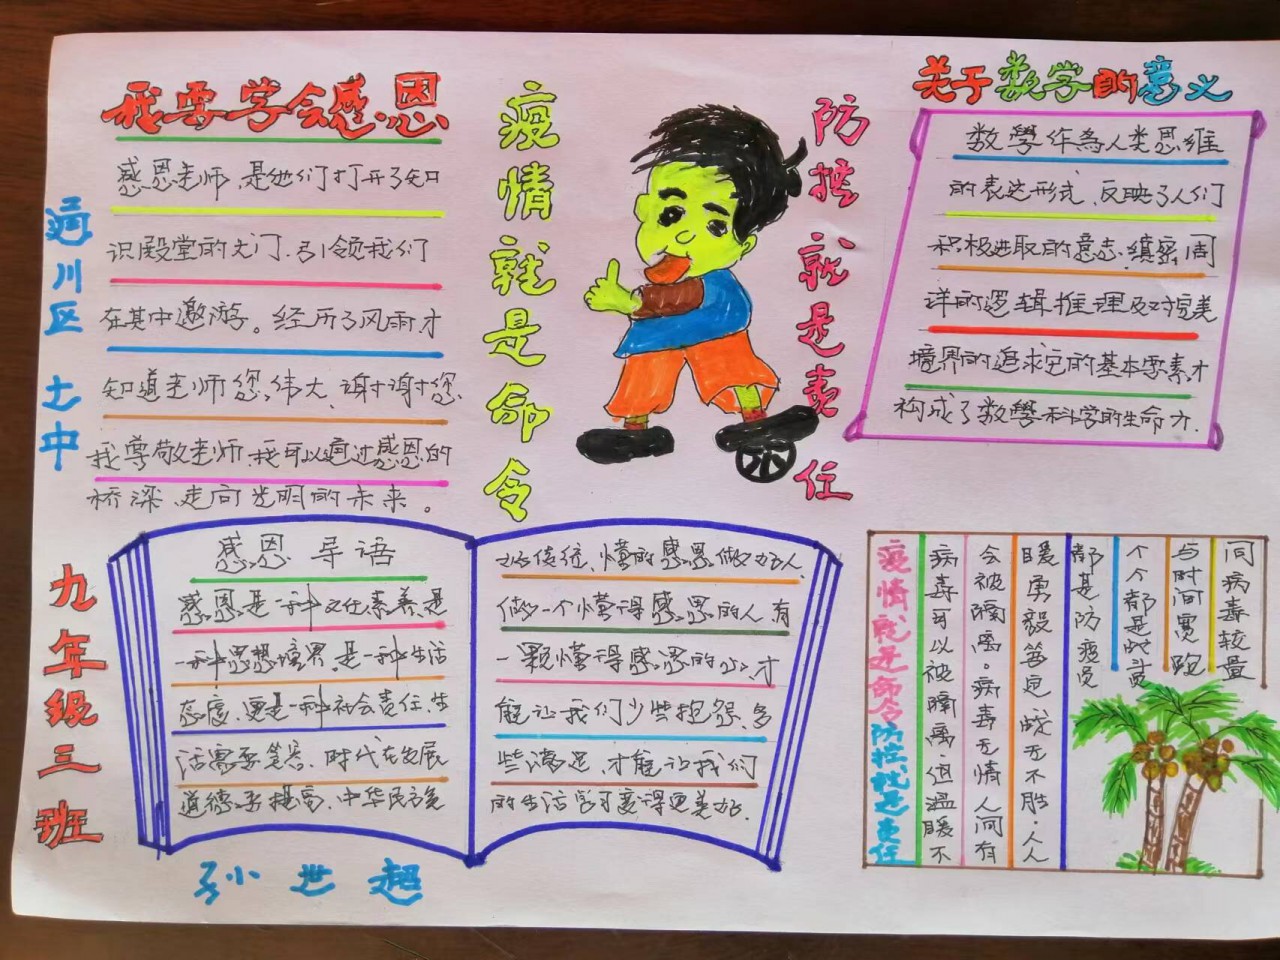 我要学会感恩
感恩老师,是他们打开了知
识殿堂的大门,引领我们
在其中遨游。经历了风雨才
知道老师您,伟大,谢谢您,
我尊敬老师,我可以通过感恩的
桥梁,走向光明的未来。
通川区 七中
九年级三班
孙世超
疫情就是命令
防控就是责任
关于数学的意义
数學作為人类思维
的表达形式,反映了人们
积极进取的意志,缜密周
详的逻辑推理及对完美
境界的追求它的基本要素才
构成了数學科学的生命力.
感恩导语
感恩是一种文化素养,是
一种思想境界,是一种生活
态度,更是一种社会责任,生
活需要笑容,时代在发展
道德要提高,中华民族
好传统,懂的感恩做好人,
做一个懂得感恩的人,有
一颗懂得感恩的心,才
能让我们少些抱怨,多
些满足,才能让我们
的生活学习变得更美好.
疫情就是命令防控就是责任
间病毒较量
与时间赛跑
个个都是战员
都是防疫员
暖勇毅笃定战无不胜.人人
会被隔离。病毒无情人间有
病毒可以被隔离但温暖不